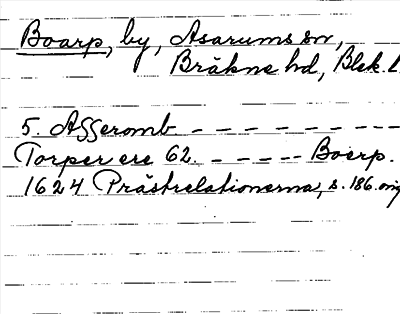 Boarp, by, Asarums sn,
Bräkne hd, Blek. l
5. Aggeromb - - - - - - - - -
Torper ere 62. - - - - - Boerp.
1624 Prästrelationerna, s. 186. orig